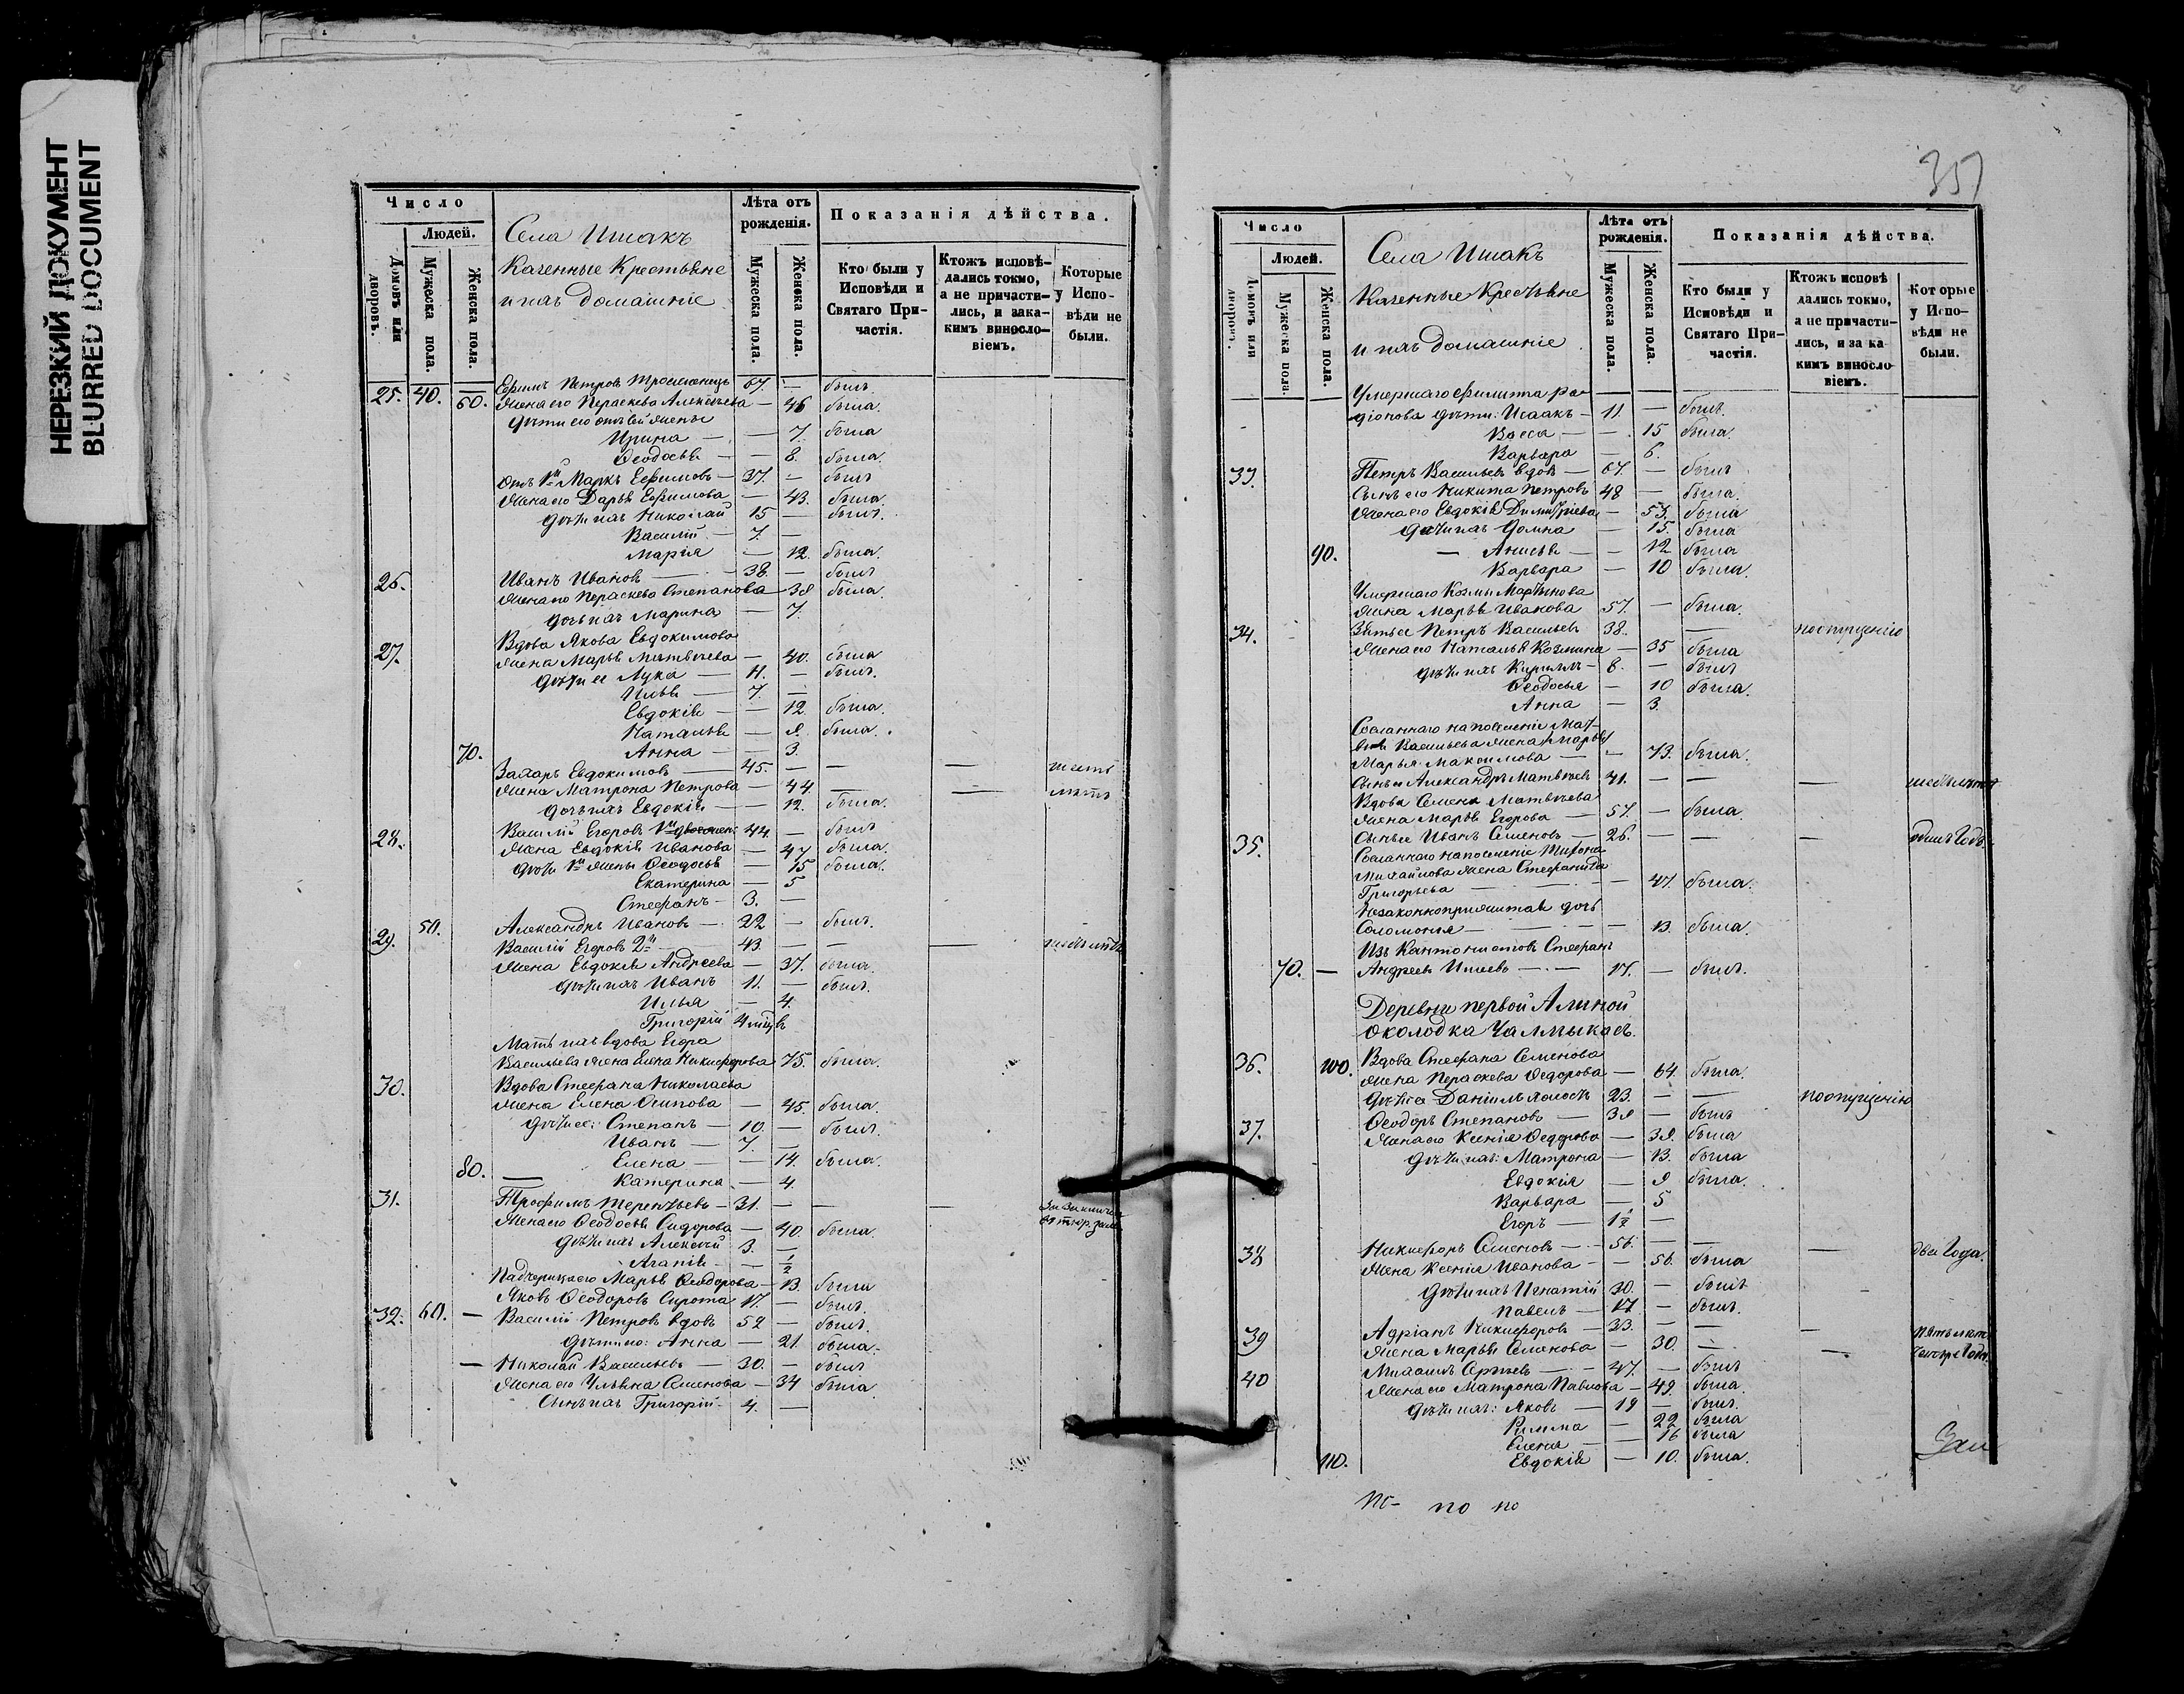 НЕРЕЗКИЙ ДОКУМЕНТ
BLURRED DOCUMENT
Число
Людей.
Домовъ или дворовъ.
Мужеска пола.
Женска пола.
Села Ишакъ
Казенные Крестьяне
и ихъ домашніе
Лѣта отъ рожденія.
Мужеска пола.
Женска пола.
Показанія дѣйства.
Кто были у Исповѣди и Святаго Причастія.
Ктожъ исповѣдались токмо, а не причастились, и закакимъ винословіемъ.
Которые у Исповѣди не были.
25. 40. 60. Ефимъ Петровъ 67. — былъ
Жена его Параскева Алексѣева — 46 была.
Дѣти его отъ сей жены
Ирина — — 7. была
Ѳеодосья — — 8. была.
Отъ 1й Маркъ Ефимовъ — 37. — былъ
Жена его Дарья Ефимова — 43. была.
Дѣти ихъ Николай 15 — былъ.
Василій — 7. —
Марія — 12. была.
26. Иванъ Ивановъ — 38. — былъ
Жена его Пераскева Степанова — 38 была.
Дочь ихъ Марина — 7.
27. Вдова Якова Евдокимова
Жена Марья Матвѣева — 40. была
Дѣти ее Лука — 11. — былъ.
Илья — 7. —
Евдокія — — 12. была.
Наталья — 9. была.
70. Анна — — 3.
Захаръ Евдокимовъ — 45. — — — шесть
Жена Матрона Петрова — 44. — — лѣтъ
Дочь ихъ Евдокія — — 12. была.
28. Василій Егоровъ 1й 44. — былъ
Жена Евдокія Иванова — 47 была.
Дочь 1й жены Ѳеодосья — 15 была.
Екатерина — 5
Стефанъ — 3. —
50. Александръ Ивановъ — 22 — былъ.
29. Василій Егоровъ 2й — 43 — — —
Жена Евдокія Андреева — 37. была.
Дѣти ихъ Иванъ 11. — былъ.
Илья — 4.
Григорій 4 мцъ
Мать ихъ вдова Егора
Васильева жена Елена Никифорова 75. была.
30. Вдова Стефана Николаева
Жена Елена Осипова — 45. была.
Дѣти ее: Степанъ — 10. — былъ.
Иванъ — 7. —
80. Елена — — 14. была.
Катерина — 4.
31. Трофимъ Терентьевъ — 31. — — —
Жена его Ѳеодосья Сидорова — 40. была.
Дѣти ихъ Алексѣй 3. —
Агапія — — ½
Падчерица его Марья Ѳеодорова — 13. была
Яковъ Ѳеодоровъ Сирота 17. — былъ.
32. 60. — Василій Петровъ вдовъ 52 — былъ.
Дѣти его: Анна — 21. была.
— Николай Васильевъ — 30. — былъ
Жена его Ульяна Семенова — 34 была
Сынъ ихъ Григорій — 4. —
357
Число
Людей.
Домовъ или дворовъ.
Мужеска пола
Женска пола.
Села Ишакъ
Казенные Крестьяне
и ихъ домашніе
Лѣта отъ рожденія.
Мужеска пола.
Женска пола.
Показанія дѣйства.
Кто были у Исповѣди и Святаго Причастія.
Ктожъ исповѣдались токмо, а не причастились, и за какимъ винословіемъ.
Которые у Исповѣди не были.
Умершаго Филиппа Ро-
діонова дѣти: Исаакъ — 11. — былъ.
Васса — — 15 была.
Варвара — 6.
33. Петръ Васильевъ вдовъ — 67. — былъ
Сынъ его Никита Петровъ 48 — была.
Жена его Евдокія Димитріева — 53. была
Дѣти ихъ Домна — 15. была
90. — Анисья — — 12 была
Варвара — 10 была.
Умершаго Козмы Мартынова
Жена Марья Иванова 57. — была.
34. Зять ее Петръ Васильевъ 38. — по опущенію
Жена его Наталья Козмина — 35 была
Дѣти ихъ Кириллъ — 8. — былъ
Ѳеодосья — 10 была.
Анна — 3.
Сосланнаго на поселеніе Мат-
вѣя Васильева жена
Марья Максимова — — 73. была.
Сынъ ее Александръ Матвѣевъ 41. — — —
Вдова Семена Матвѣева
Жена Марья Егорова — 57. — была.
35. Сынъ ее Иванъ Семеновъ — 26. — — — одинъ Годъ.
Сосланнаго на поселеніе
Михайлова жена Стефанида
Григорьева — — 47. была.
Незаконноприжитая дочь
Соломонія — — 13. была.
Изъ Кантонистовъ Стефанъ
70. — Андреевъ — 17. — былъ.
Деревни первой
околодка Чалмыкасъ.
36. 100. Вдова Стефана Семенова
Жена Пераскева Ѳедорова — 64. была.
Дѣти ее Даніилъ холостъ 23. — — по опущенію
37. Ѳеодоръ Степановъ — 39 — былъ
Жена его Ксенія Ѳедорова — 39. была
Дѣти ихъ: Матрона — 13. была
Евдокія — 9 была.
Варвара — 5
Егоръ — 1½ —
38 Никифоръ Семеновъ — 56. — — — два Года.
Жена Ксенія Иванова — — 56. была
Дѣти ихъ Игнатій 30. — былъ
Павелъ — 17. — былъ.
39 Адріанъ Никифоровъ — 33. — — — пять лѣтъ
Жена Марья Семенова — 30. — — четыре Года.
40 Михаилъ — 47. — былъ
Жена его Матрона Павлова — 49. была.
Дѣти ихъ: Яковъ — 19 — былъ.
Римма — 22 была
Елена — 16 была
110. Евдокія — 10. была.
по по